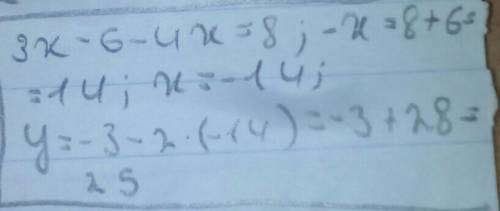 3x - 6 - 4x = 8 ; -x = 8 + 6 =
= 14 ; x = -14 ;
y = -3 - 2 · (-14) = -3 + 28 =
25